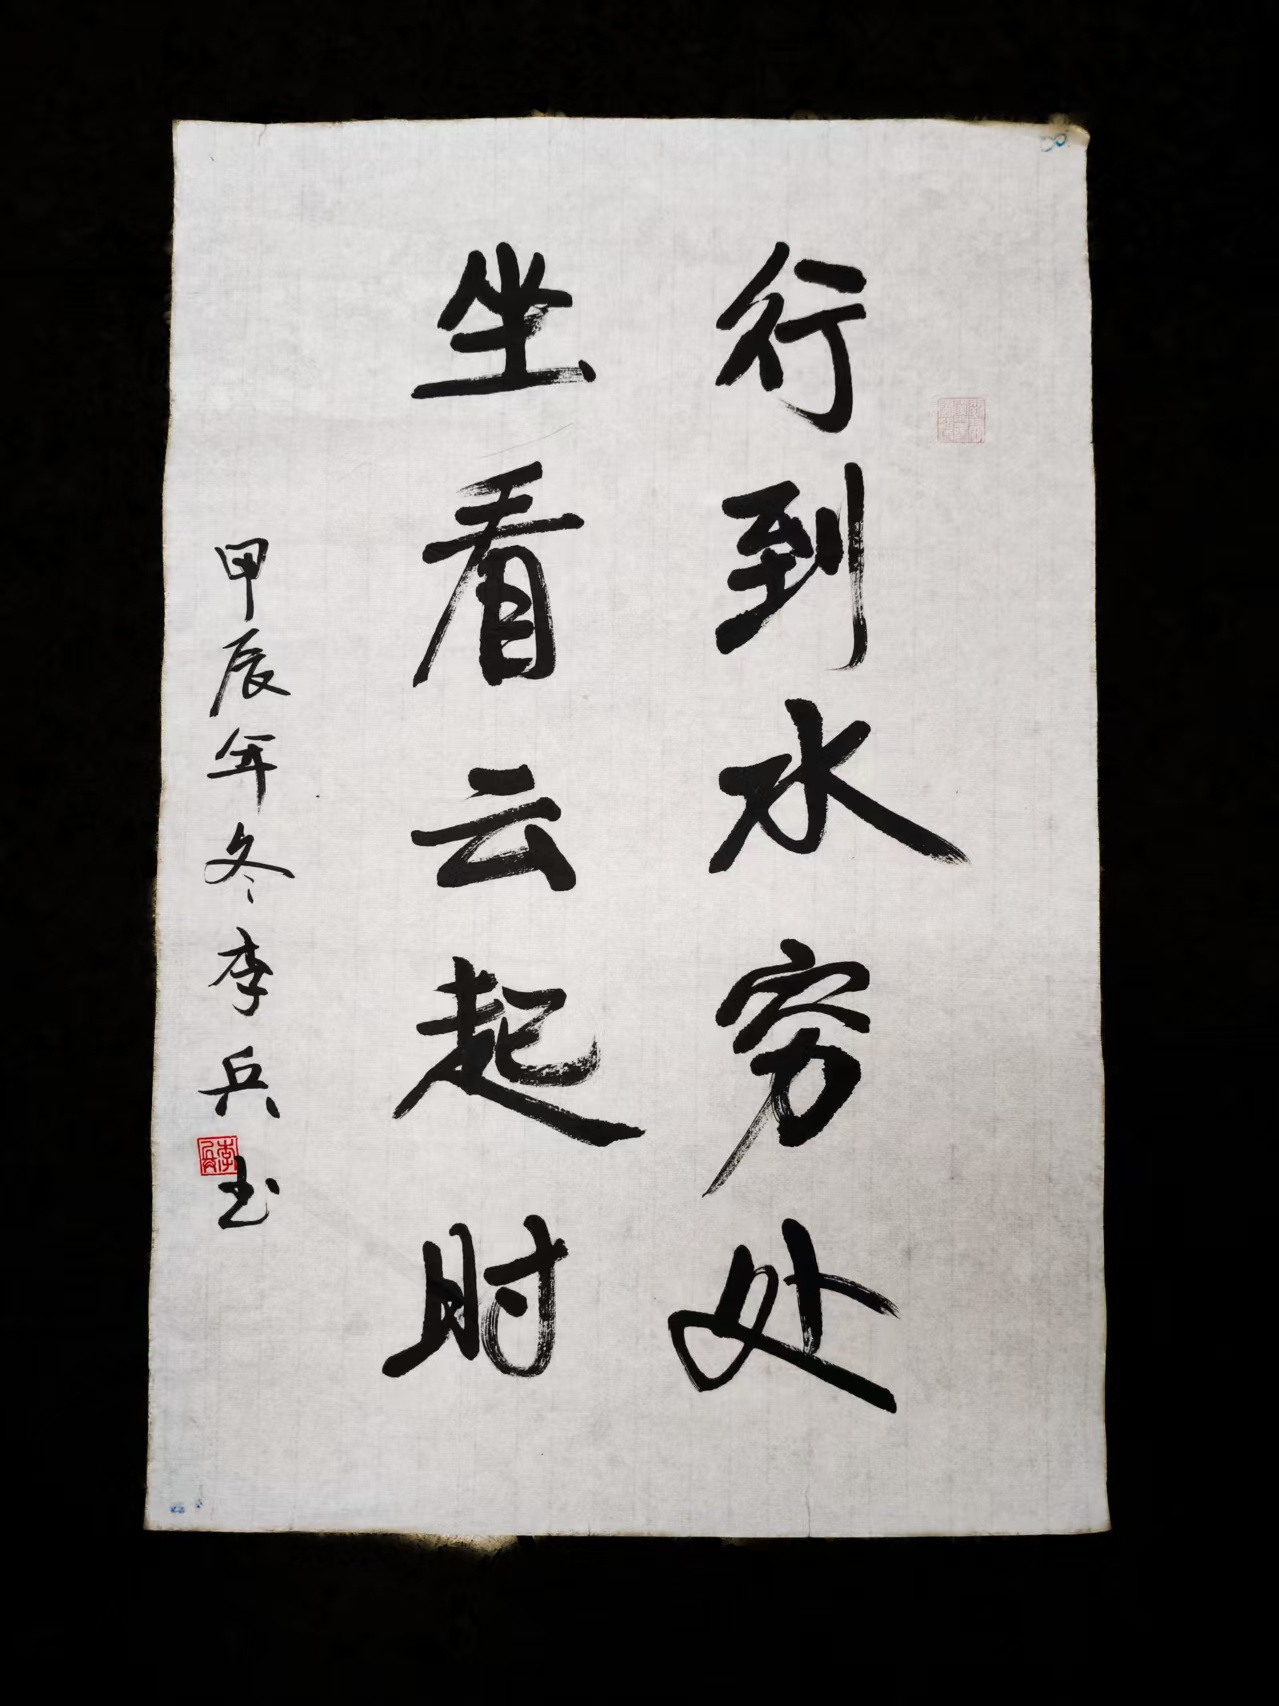 行到水穷处
坐看云起时
甲辰年冬李兵书
李兵